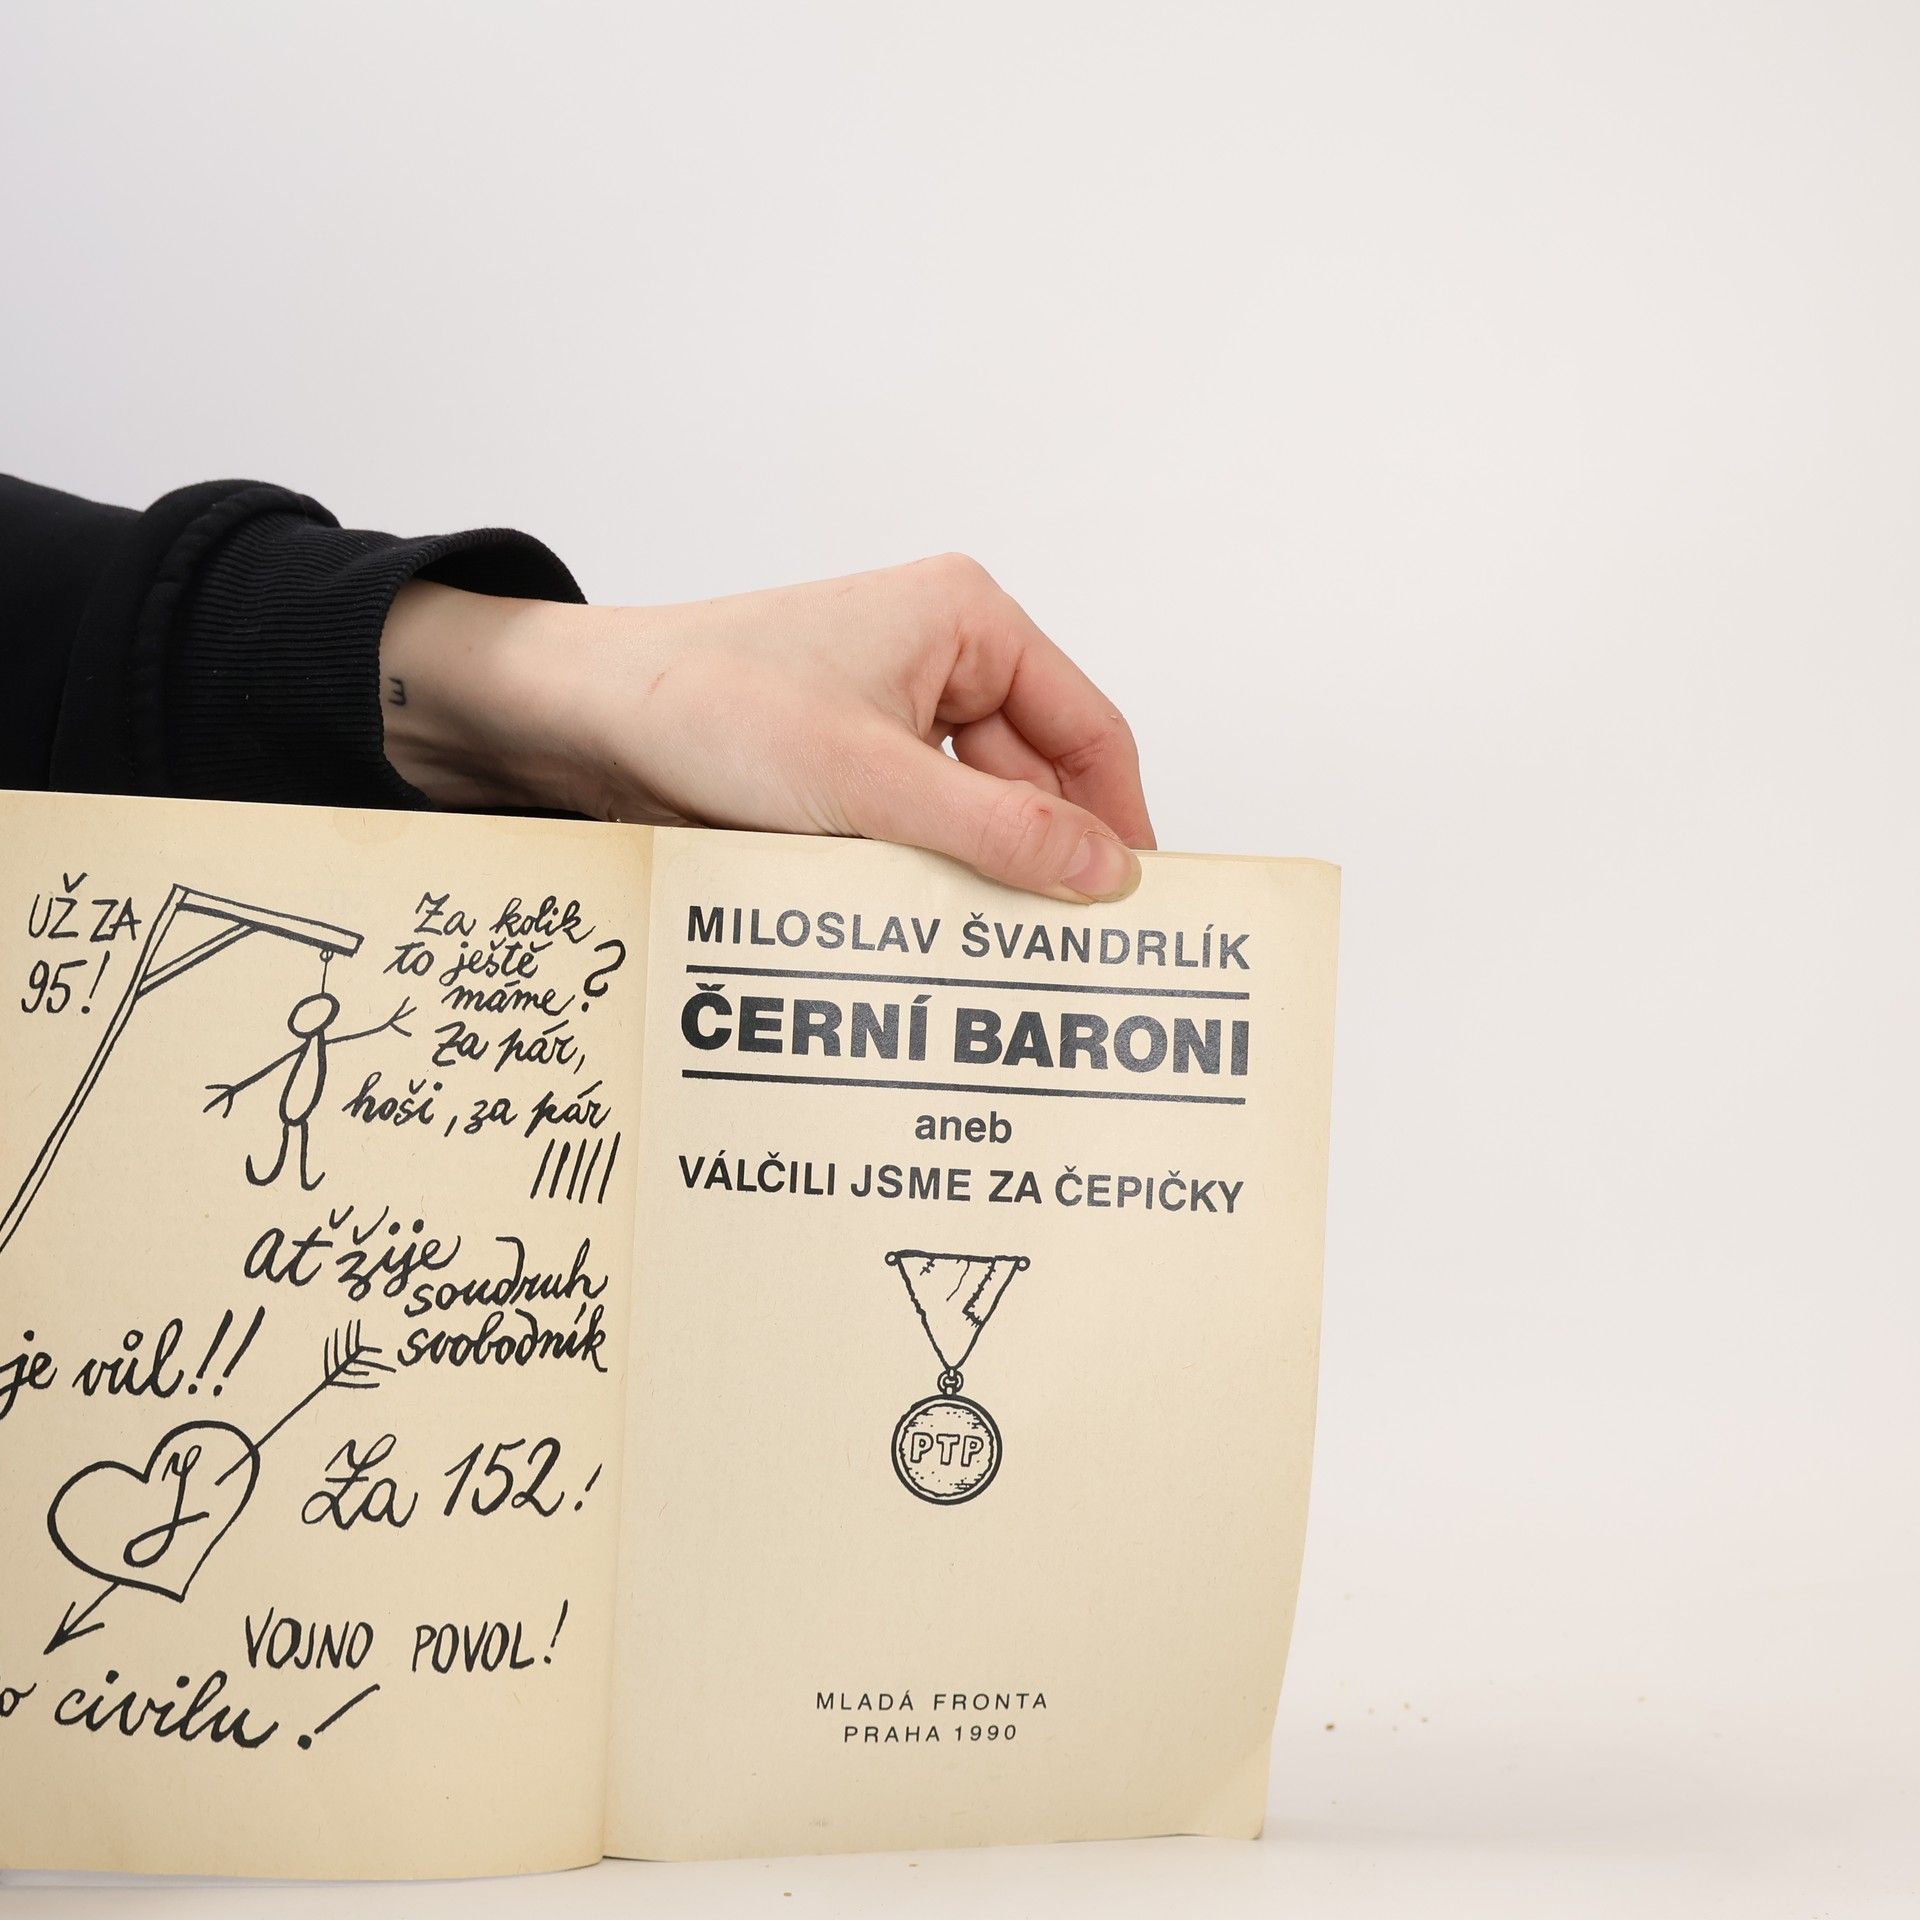 UŽ ZA
95!
Za kolik
to ještě
máme?
Za pár,
hoši, za pár
Ať žije
soudruh
svobodník
je vůl!!
J
Za 152!
VOJNO POVOL!
civilu!
MILOSLAV ŠVANDRLÍK
ČERNÍ BARONI
aneb
VÁLČILI JSME ZA ČEPIČKY
PTP
MLADÁ FRONTA
PRAHA 1990